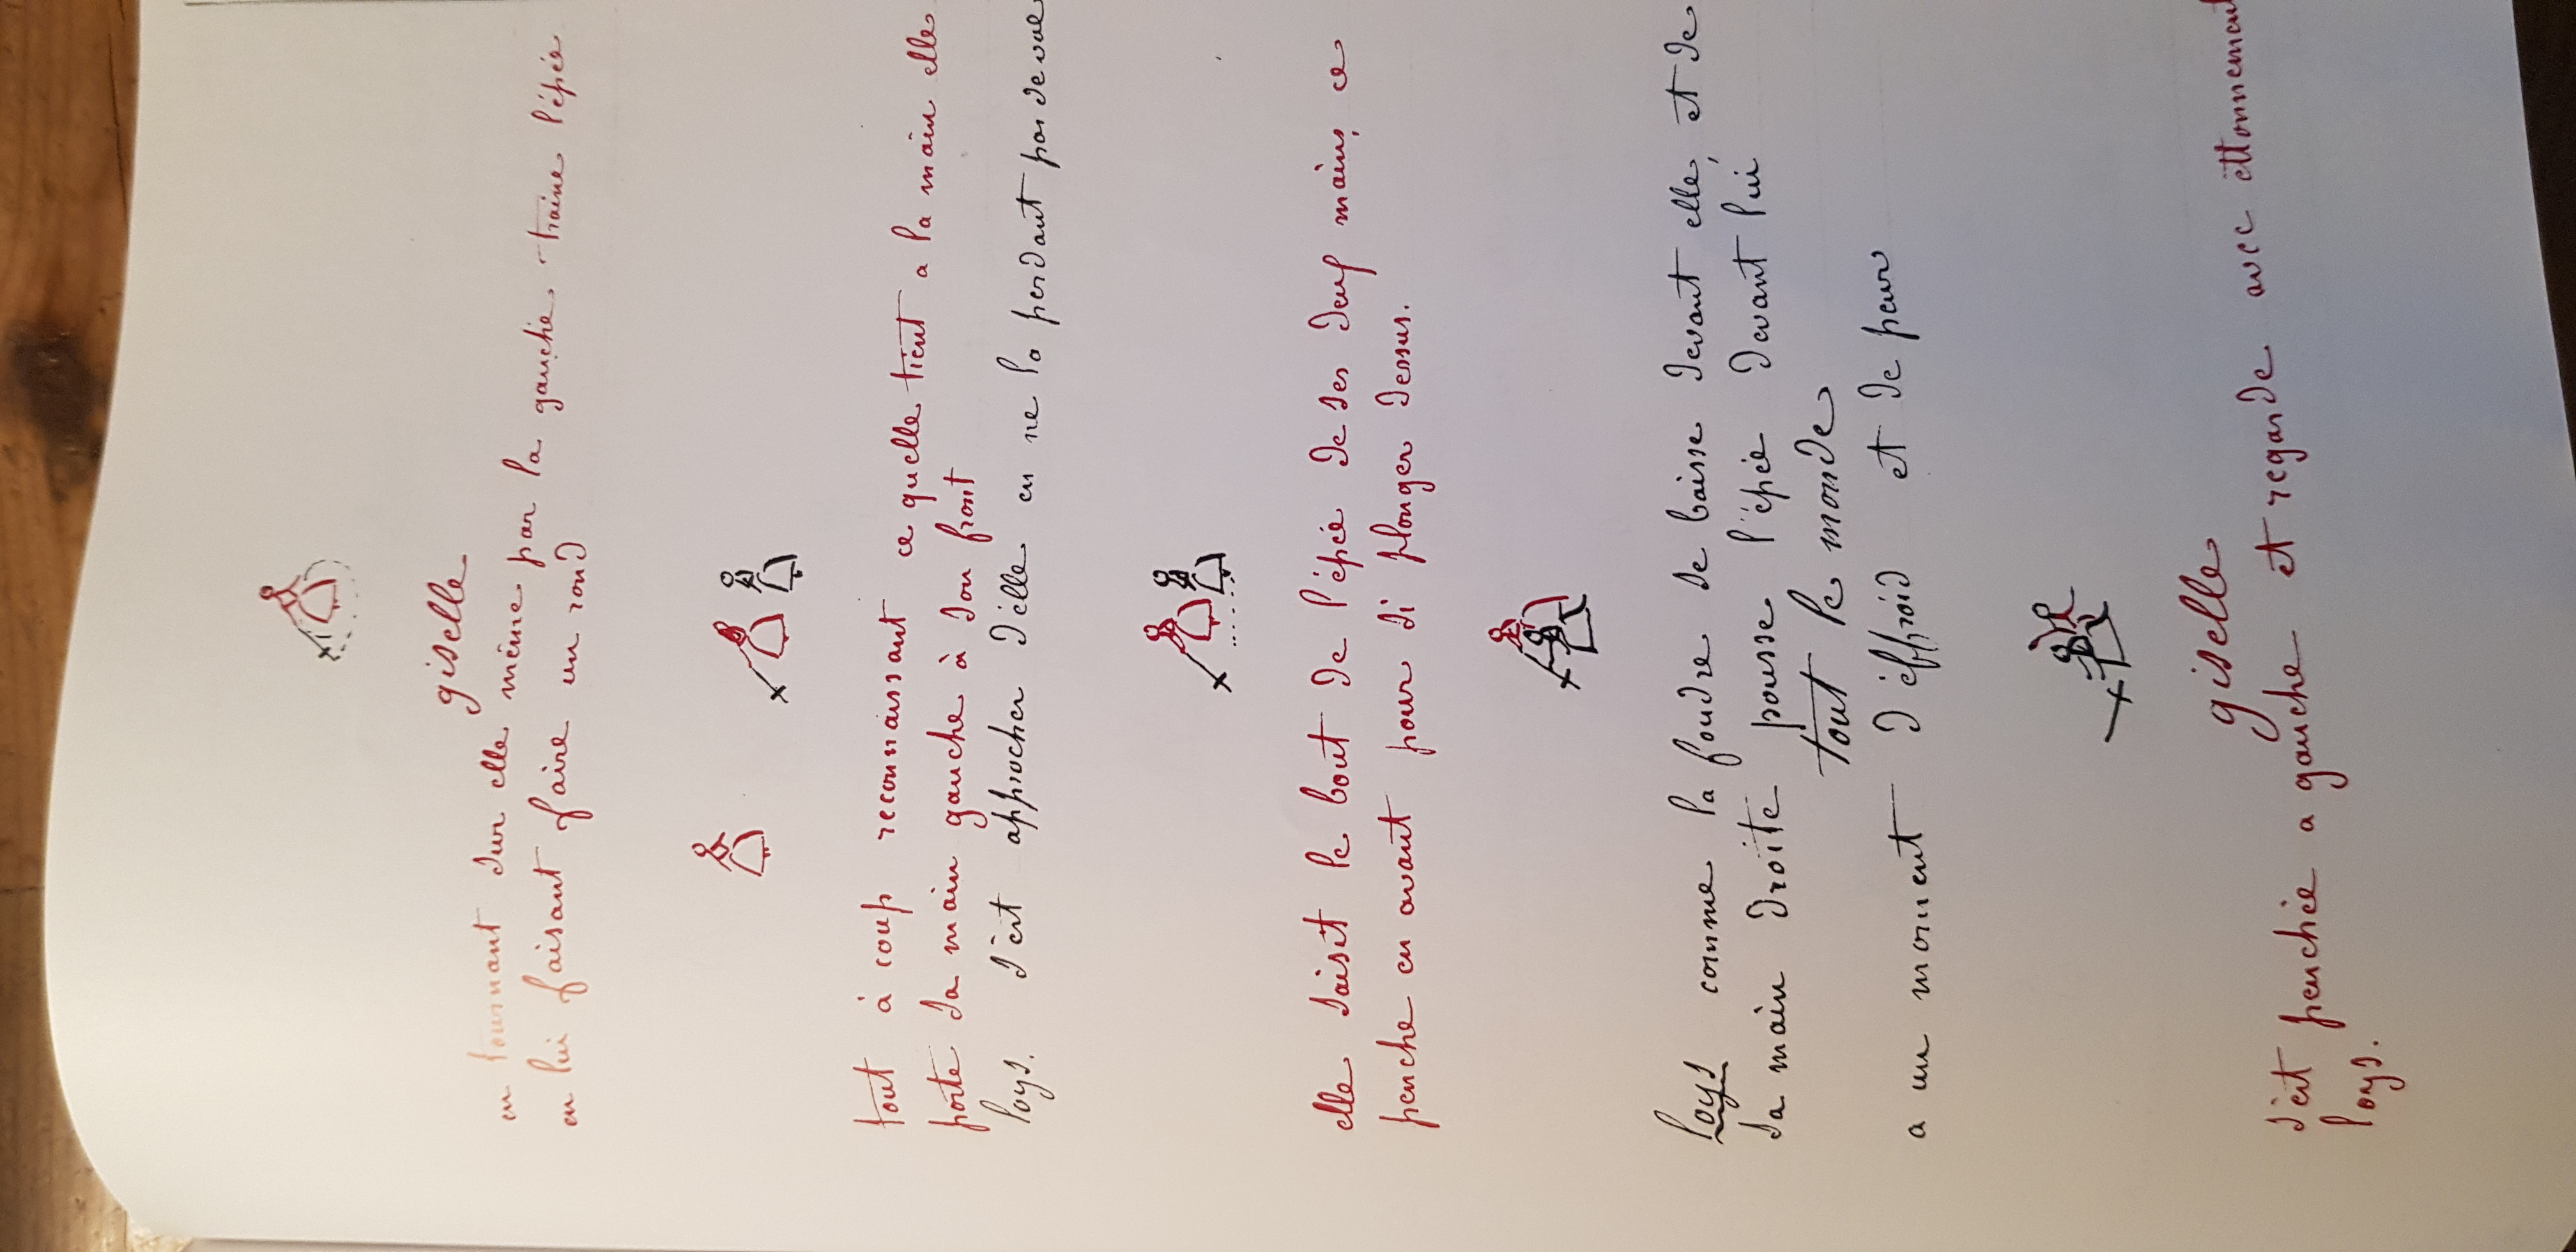 giselle
en tournant sur elle même par la gauche traine l'épée
en lui faisant faire un rond
tout à coup reconnaissant ce quelle tient a la main elle
porte sa main gauche à son front
loys. s'est approcher d'elle en ne la perdant pas de vue
elle saisit le bout de l'épée de ses deux mains, ce
penche en avant pour si plonger dessus.
loys comme la foudre se baisse devant elle, et de
sa main droite pousse l'épée devant lui
tout le monde
a un moment d'effroid et de peur
giselle
s'est penchée a gauche et regarde avec éttonnement
loys.